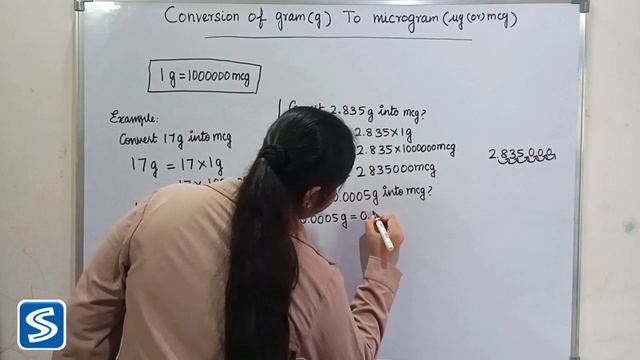 Conversion of gram(g) To microgram (ug (or) mcg)
1 g = 1000000 mcg
Example:
Convert 17g into mcg
17g = 17 × 1g
2.835g into mcg?
2.835 × 1g
2.835 × 100000mcg
2835000mcg
0.0005g into mcg?
0.0005g = 0.
2.835000
S